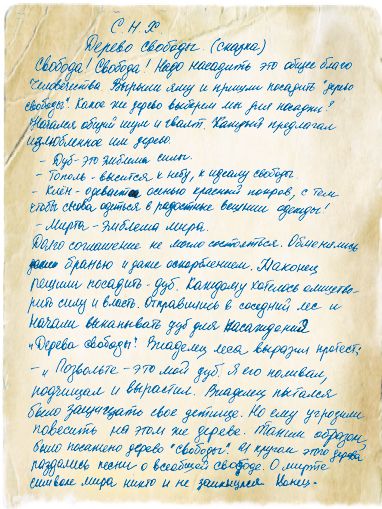 С. Н. Х
Дерево свободы. (сказка)
Свобода! Свобода! Надо насадить это общее благо
человечества. Вырыли яму и пришли посадить "дерево
свободы". Какое же дерево выберем мы для насадки?
Начался общий шум и гвалт. Каждый предлагал
излюбленное им дерево.
- Дуб - это эмблема силы.
- Тополь - высится к небу, к идеалу свободы.
- Клён - одевается осенью красный покров, с тем
чтобы снова одеться в радостные весенние одежды!
- Мирта - эмблема мира.
Долго соглашение не могло состояться. Обменялись
бранью и даже оскорблением. Наконец
решили посадить - дуб. Каждому хотелось олицетво-
рить силу и власть. Отправились в соседний лес и
начали выкапывать дуб для насаждения
„Дерева свободы". Владелец леса выразил протест:
- „Позвольте - это мой дуб. Я его поливал,
подчищал и вырастил. Владелец пытался
было защищать свое детище. Но ему угрозили
повесить на этом же дереве. Таким образом
было посажено дерево "свободы". И кругом этого дерева
раздались песни о всеобщей свободе. О мирте
символе мира никто и не заикнулся. Конец.